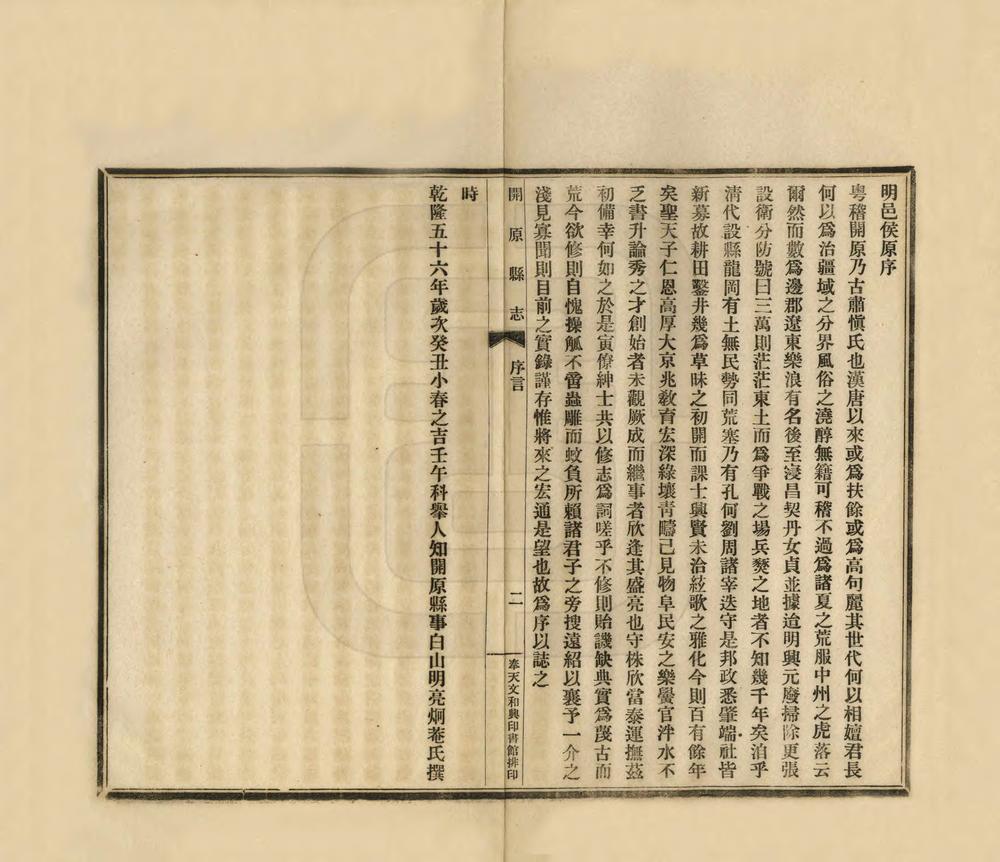 明邑侯原序
粵稽開原乃古肅愼氏也漢唐以來或爲扶餘或爲高句麗其世代何以相嬗君長
何以爲治疆域之分界風俗之澆醇無籍可稽不過爲諸夏之荒服中州之虎落云
爾然而數爲邊郡遼東樂浪有名後至寖昌契丹女貞並據迨明興元廢掃除更張
設衛分防號曰三萬則茫茫東土而爲爭戰之場兵燹之地者不知幾千年矣洎乎
淸代設縣龍岡有土無民勢同荒塞乃有孔何劉周諸宰迭守是邦政悉肇端社皆
新募故耕田鑿井幾爲草昧之初開而課士興賢未洽絃歌之雅化今則百有餘年
矣聖天子仁恩高厚大京兆敎育宏深綠壤靑疇已見物阜民安之樂黌官泮水不
乏書升論秀之才創始者未觀厥成而繼事者欣逢其盛亮也守株欣當泰運撫茲
初備幸何如之於是寅僚紳士共以修志爲詞嗟乎不修則貽譏缺典實爲蔑古而
荒今欲修則自愧操觚不啻蟲雕而蚊負所賴諸君子之旁搜遠紹以襄予一介之
淺見寡聞則目前之實錄謹存惟將來之宏通是望也故爲序以誌之
開原縣志 序言 二 奉天文和興印書館排印
時
乾隆五十六年歲次癸丑小春之吉壬午科舉人知開原縣事白山明亮炯菴氏撰